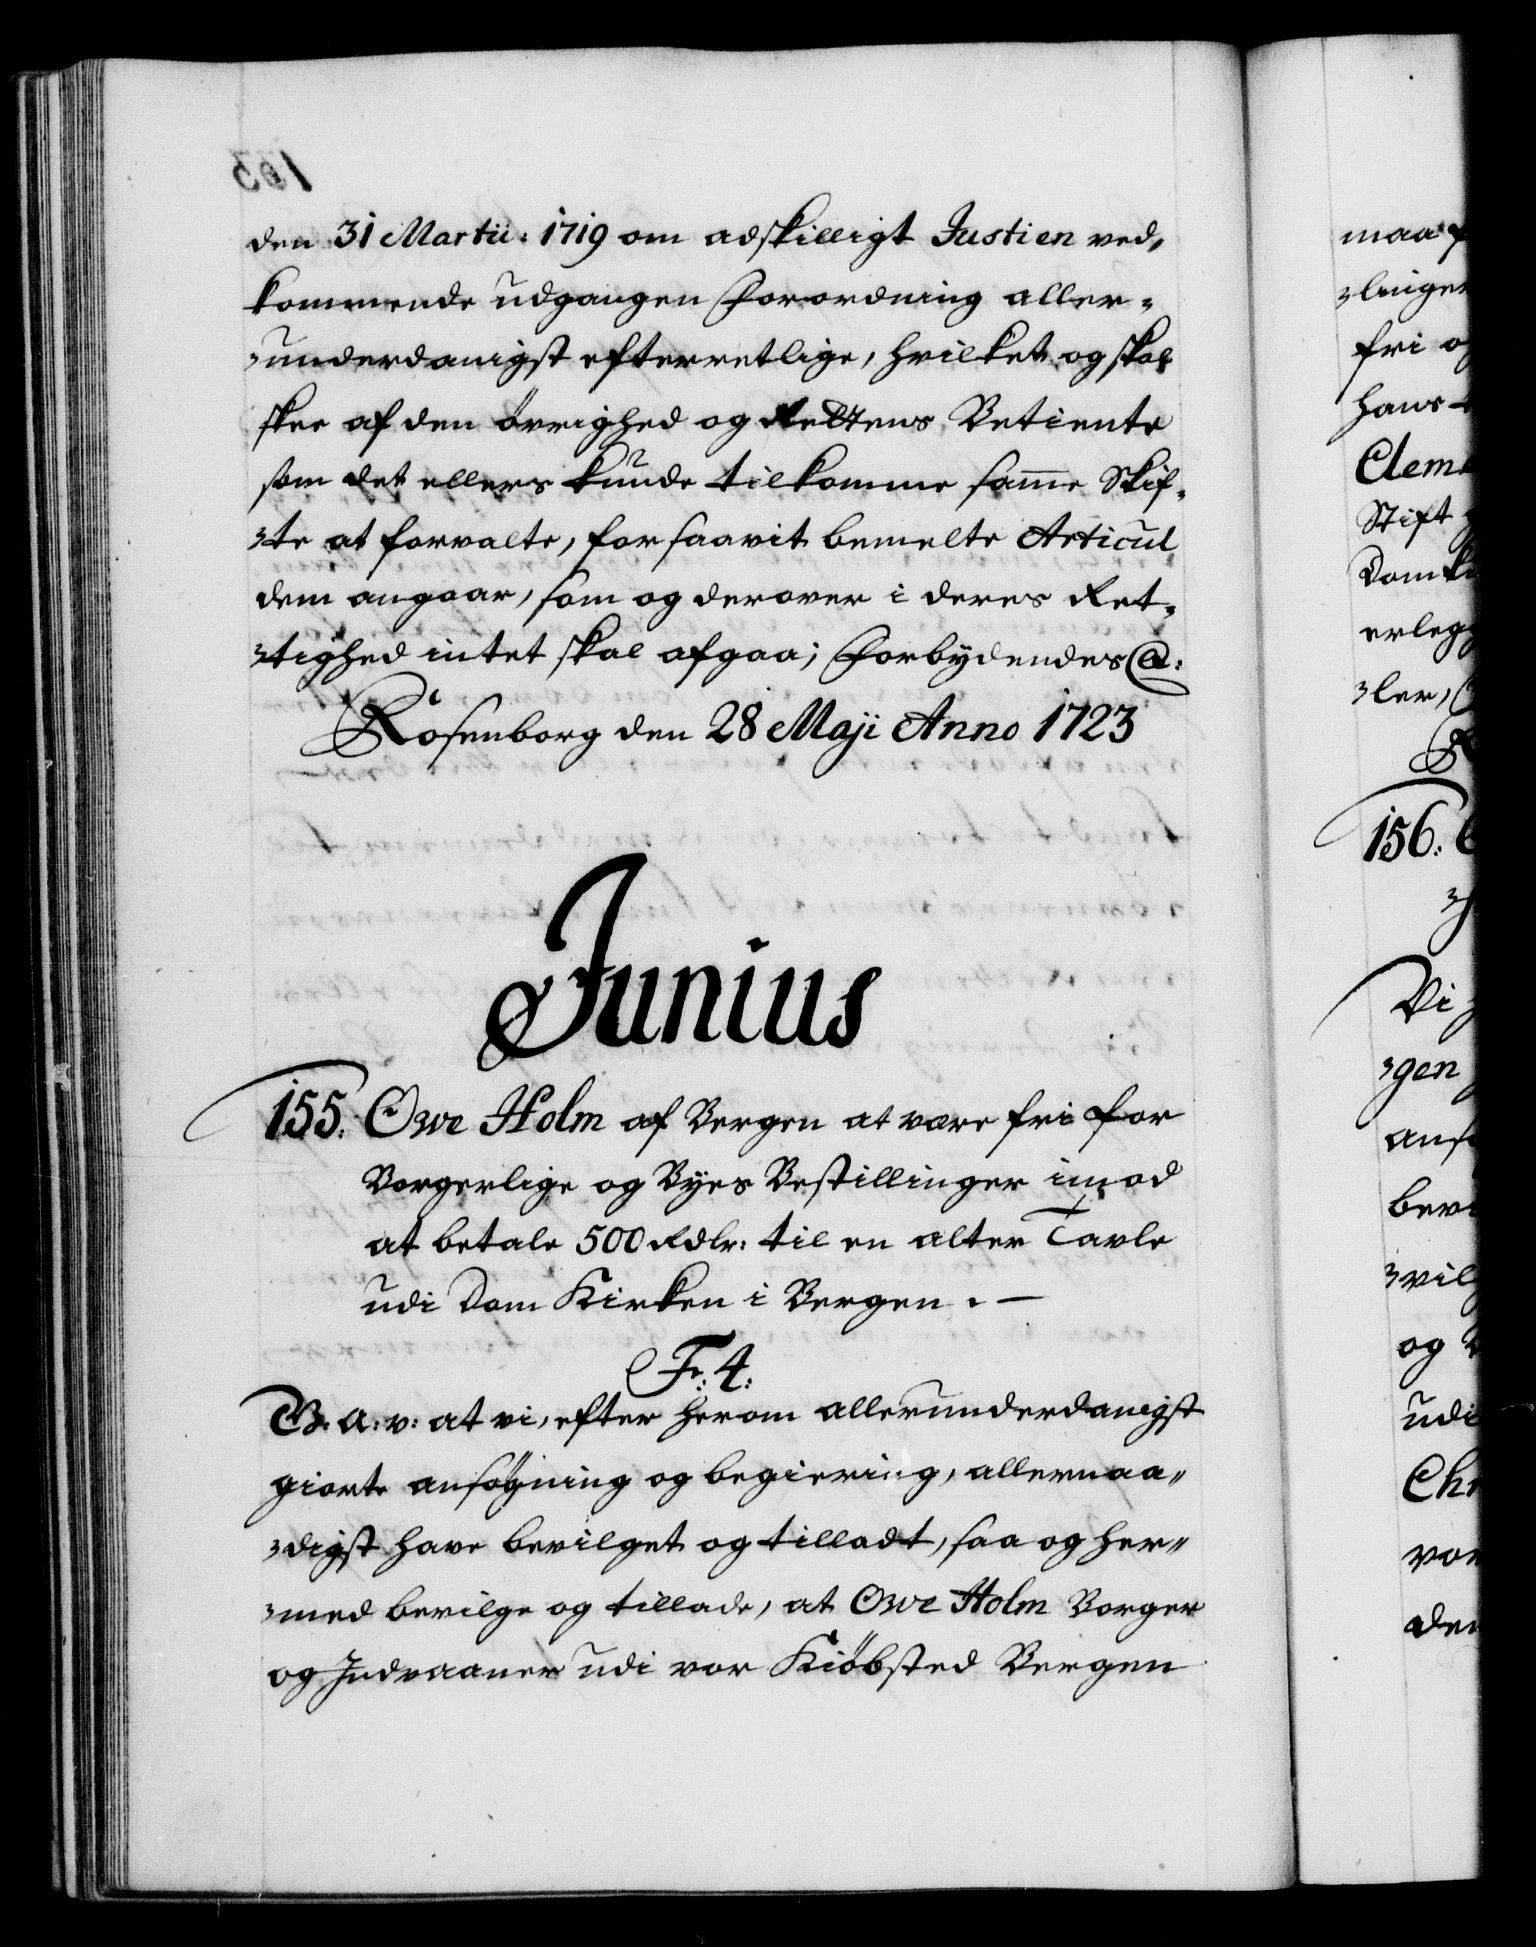 den 31 Martii: 1719 om adskilligt Justien ved„
kommende udgangen Forordning aller„
„underdanigst efterretlige, hvilket og skal
skee af den övrighed og Rettens Betiente
som det ellers kunde tilkomme same Skif„
„te at forvalte, forsaavit bemelte Articul
dem angaar, som og derover i deres Ret„
„tighed intet skal afgaa; Forbydendes @:
Rosenborg den 28 Maji Anno 1723
Junius
155. Owe Holm af Bergen at være fri for
Borgerlige og Byes Bestillinger imod
at betale 500 Rdlr: til en alter Tavle
udi Dom Kirken i Bergen. —
Fr: 4:
G: A: v: at vi, efter herom allerunderdanigst
giorte ansögning og begiering, allernaa„
„digst have bevilget og tilladt, saa og her„
„med bevilge og tillade, at Owe Holm Borger
og Indvaaner udi vor Kiöbsted Bergen
maa
„linger
fri og
hans
Stift
erleg
„ler,
156.
Vi
„gen
og
udi